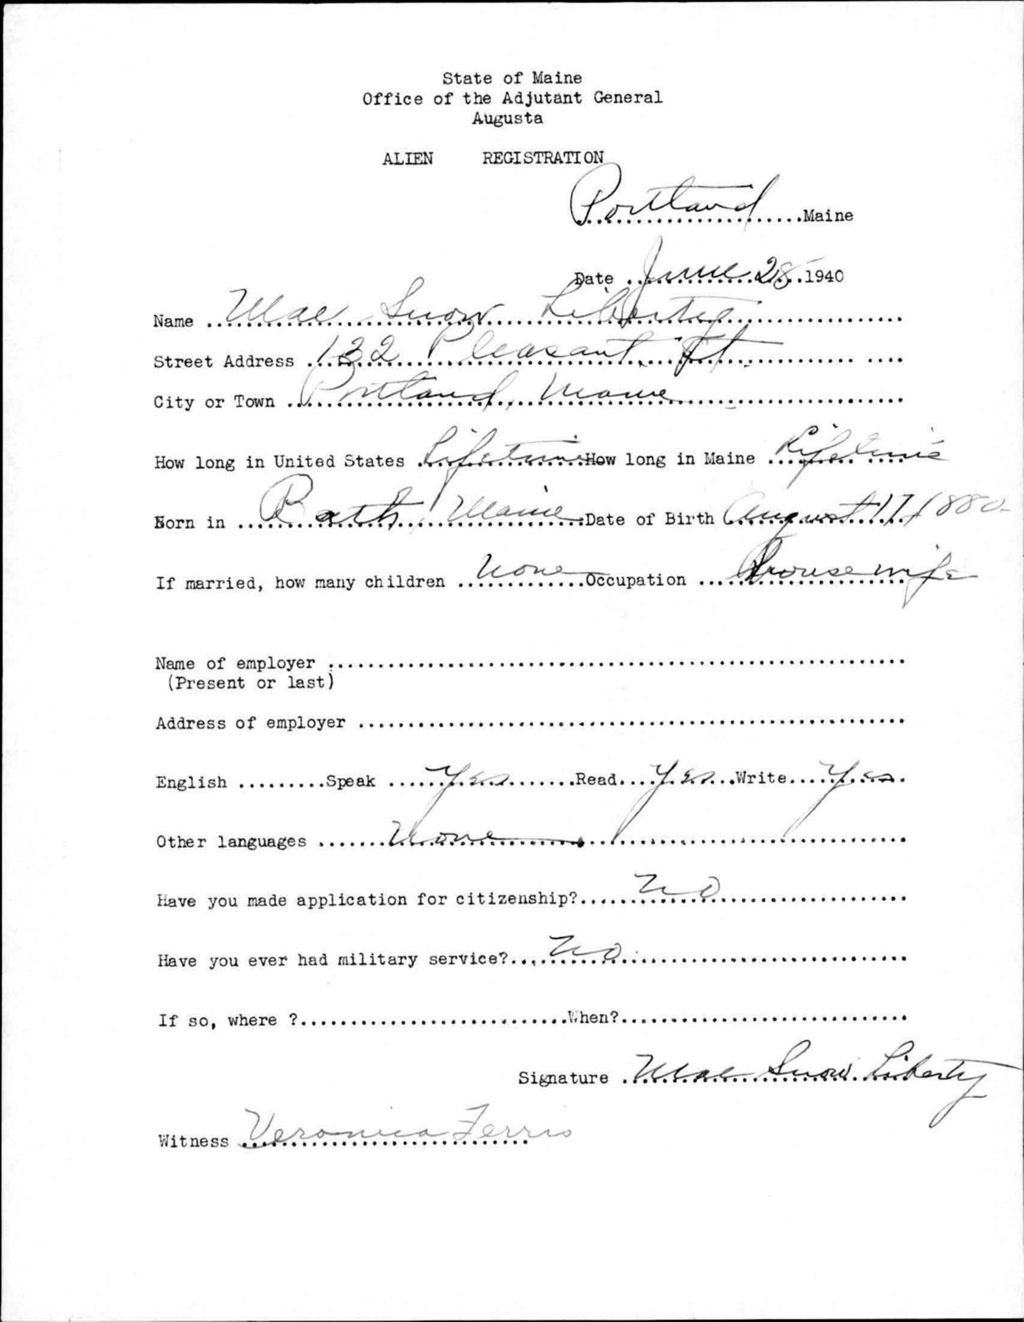 State of Maine
Office of the Adjutant General
Augusta
ALIEN REGISTRATION
Portland Maine
Date June 28 1940
Name Mae Snow Liberty
Street Address 132 Pleasant St.
City or Town Portland, Maine
How long in United States Lifetime How long in Maine Lifetime
Born in Bath, Maine Date of Birth August 17, 1880
If married, how many children None Occupation Housewife
Name of employer
(Present or last)
Address of employer
English Speak Yes Read Yes Write Yes
Other languages None
Have you made application for citizenship? No
Have you ever had military service? No
If so, where ? When?
Signature Mae Snow Liberty
Witness Veronica Ferris